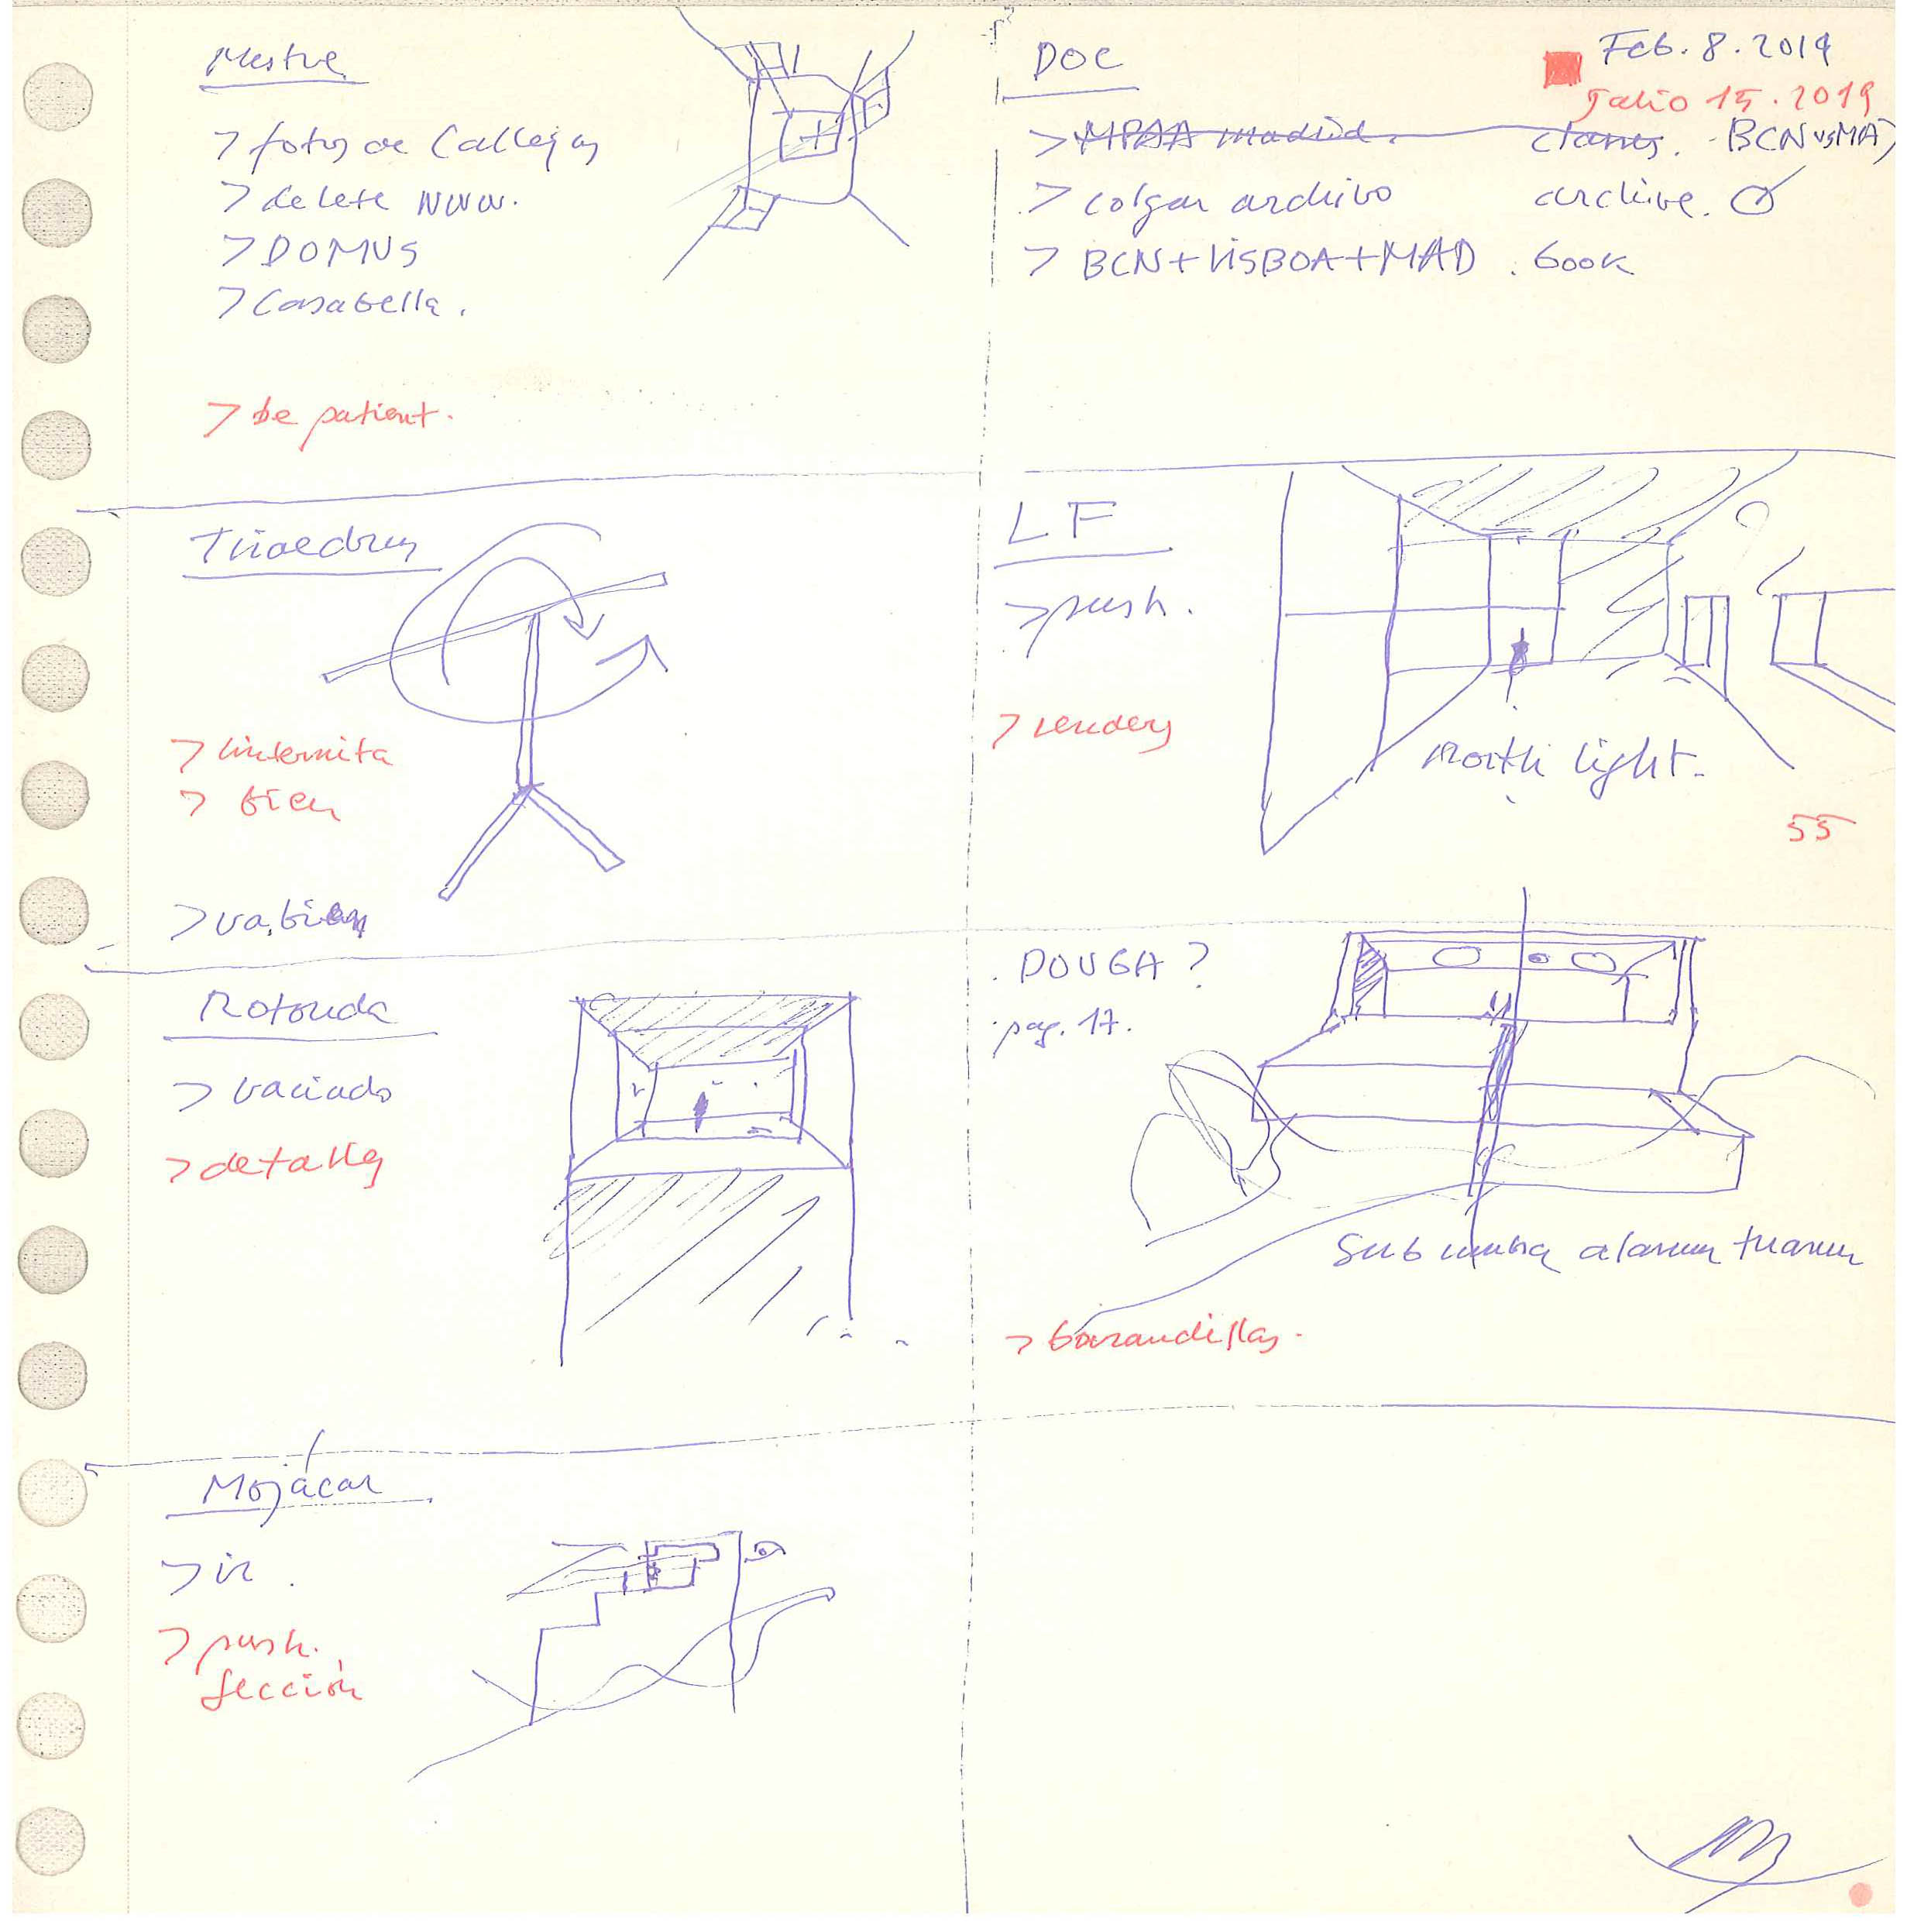 Mestre
> fotos de Callejas
> delete www.
> DOMUS
> Casabella.
> be patient.
DOC
Feb. 8. 2019
Julio 15. 2019
> MPAA madrid. clases. BCN vs MAD
> colgar archivo archive.
> BCN + LISBOA + MAD. book
Triaedrus
> linternita
> bien
> va bien
LF
> push.
> renders
North light.
55
Rotonda
> vaciado
> detalles
. DOUGA?
pag. 17.
Sub umbra alarum tuarum
> barandillas.
Mojácar
> ir.
> push.
sección